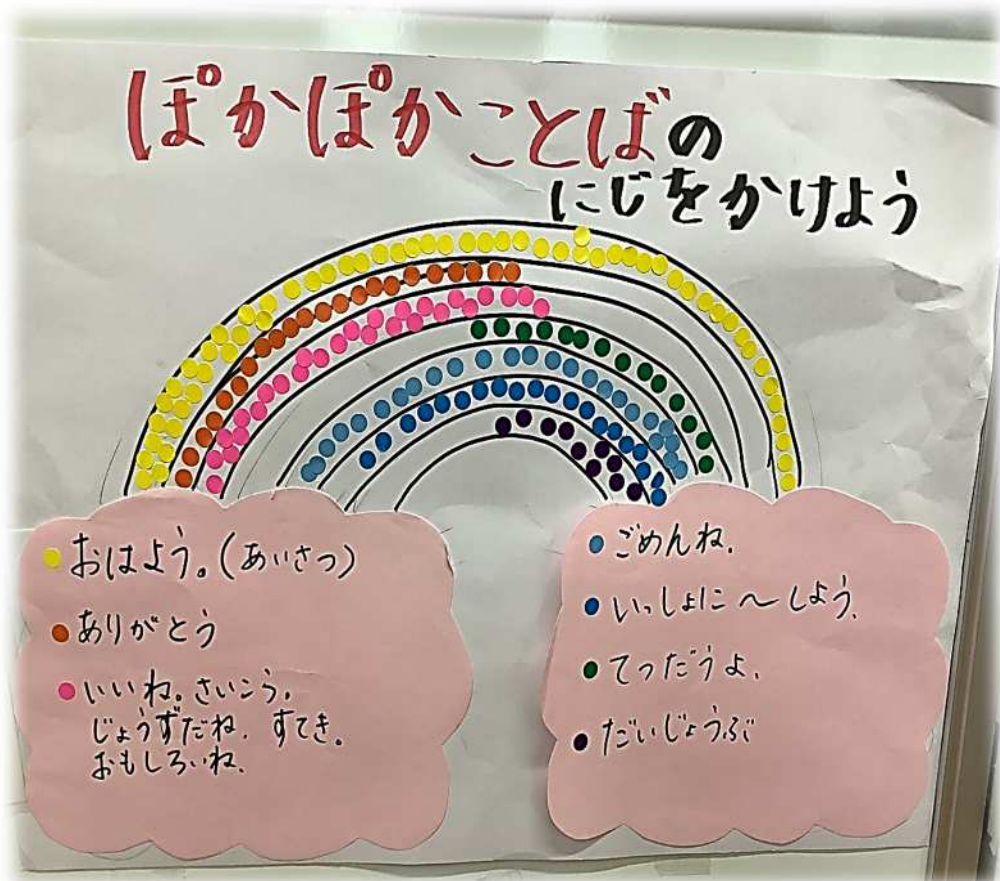 ぽかぽかことばの
にじをかけよう
おはよう。(あいさつ)
ありがとう
いいね。さいこう。
じょうずだね。すてき。
おもしろいね。
ごめんね。
いっしょに～しよう。
てつだうよ。
だいじょうぶ